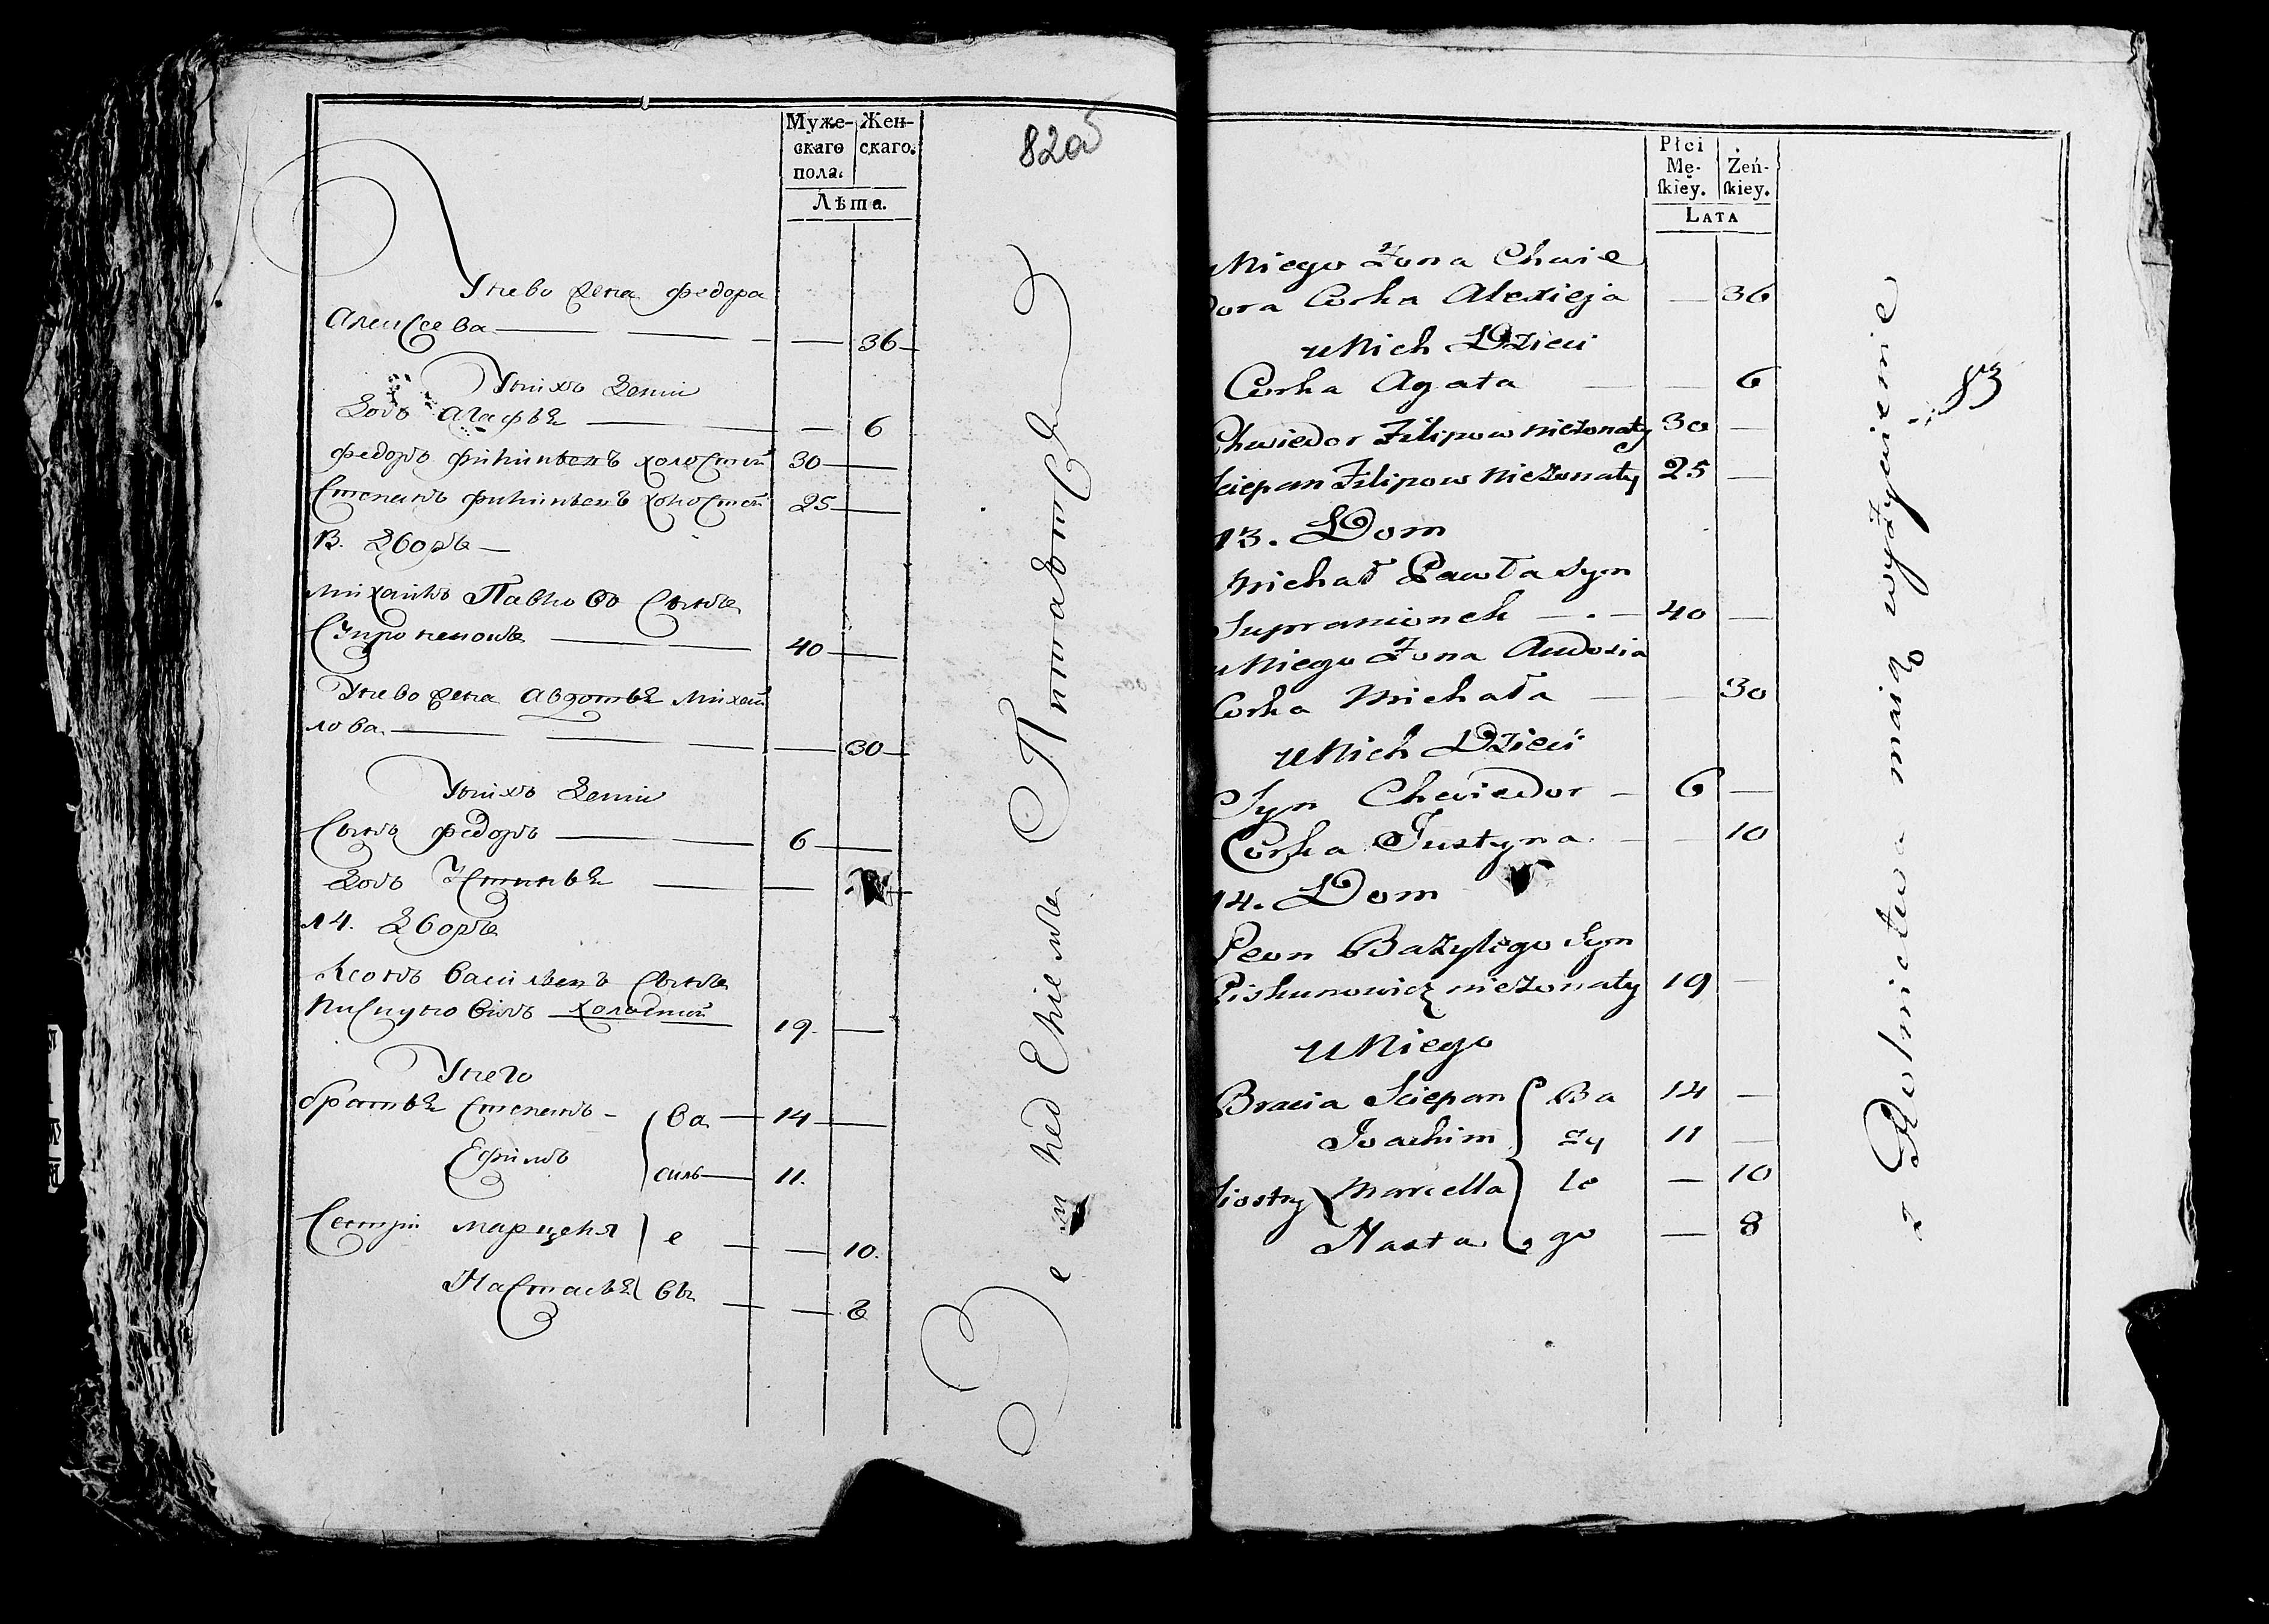 Муже-
скаго
пола.
Жен-
скаго.
Лѣта.
82об
Унево жена федора
Алексеева 36
Унихъ дети
Дочь Агафья 6
федоръ филиповъ холостой 30
Степанъ филиповъ холостой 25
13. Дворъ
Михаилъ Павловъ сынъ
40
Унево жена Авдотья Михай
лова 30
Унихъ дети
Сынъ федоръ 6
Дочь Устинья
14. Дворъ
Леонъ Васильевъ сынъ
холостой 19.
Унего
братья Степанъ Ва 14
Ефимъ силь 11.
Сестры марцеля е 10.
Настасья вы 8
Земледелиемъ Питаютса
Płci
Mę-
skiey.
Żeń-
skiey.
LATA
83
uNiego Żona Chwie
dora Corka Alexieja 36
uNich Dzieci
Corka Agata 6
Chwiedor Filipow nieżonaty 30
Sciepan Filipow nieżonaty 25
13. Dom
Michał Pawła Syn
Supranionek 40
uNiego Żona Audosia
Corka Michała 30
uNich Dzieci
Syn Chwiedor 6
Corka Justyna 10
14. Dom
Leon Bazylego Syn
Piskunowicz nieżonaty 19
uNiego
Bracia Sciepan Ba 14
Joachim zy 11
Siostry Marcella le 10
Nasta go 8
z Rolnictwa maią wyżywienie